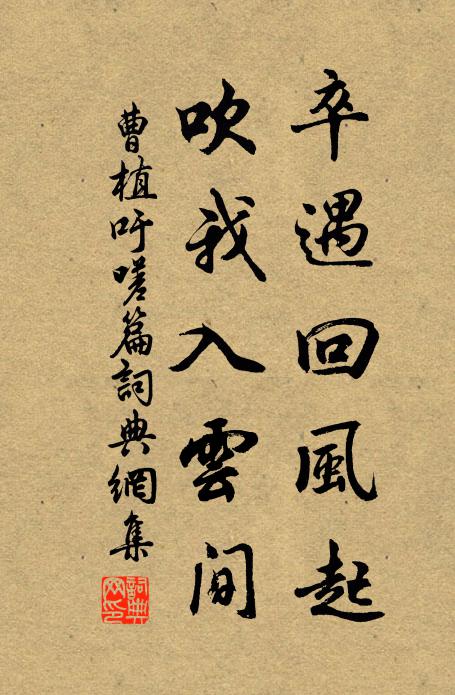 卒遇回風起
吹我入雲間
曹植吁嗟篇詞典網集
詞典
网印